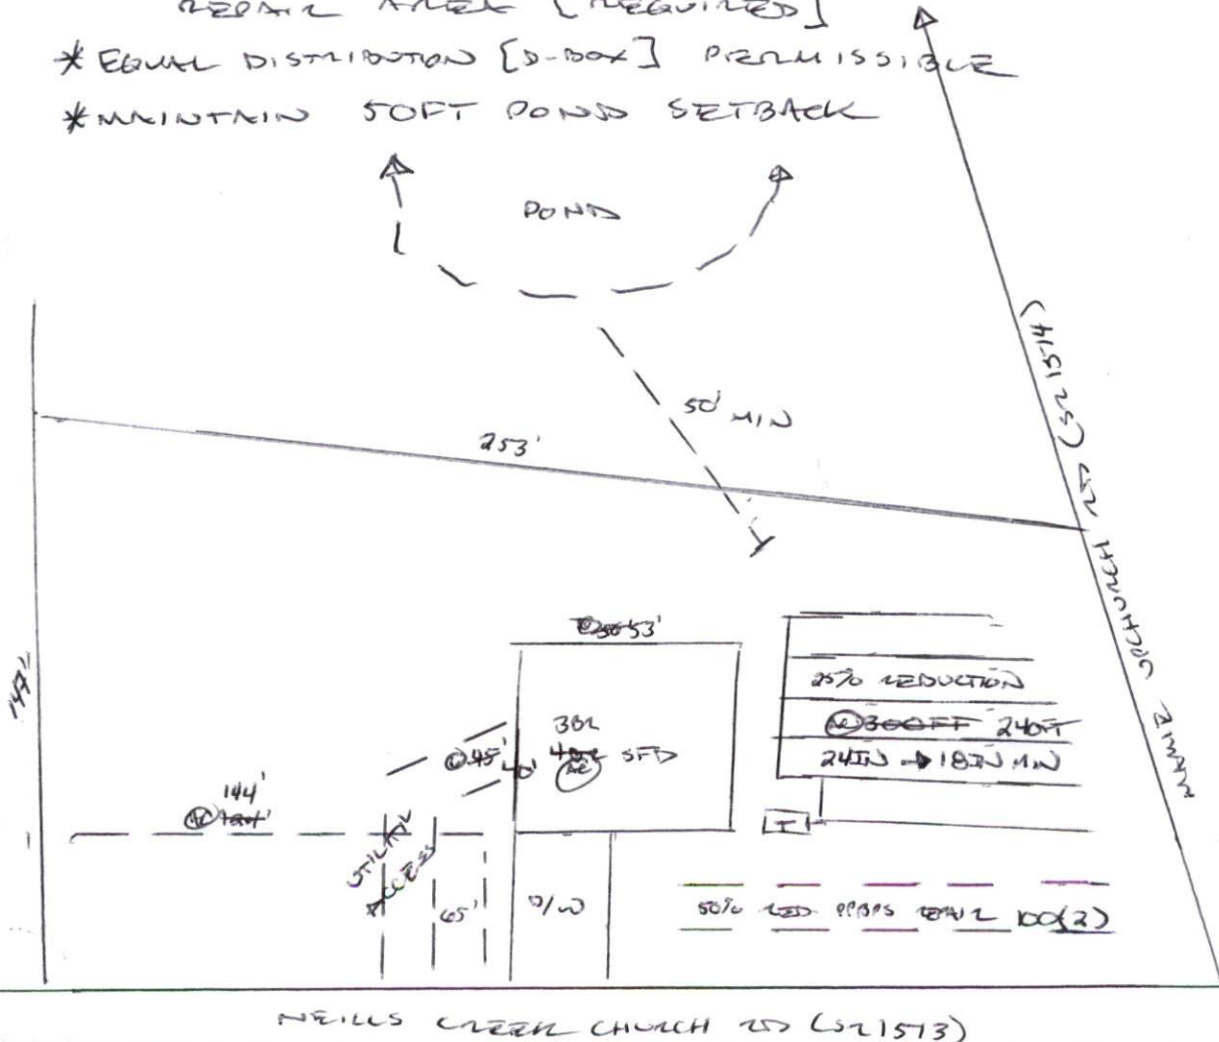 REPAIR AREA [REQUIRED]
* EQUAL DISTRIBUTION [D-BOX] PERMISSIBLE
* MAINTAIN 50FT POND SETBACK
POND
50' MIN
253'
MAMIE UPCHURCH RD (SR 1514)
147'
53'
25% REDUCTION
300FT 240FT
24IN → 18IN MIN
3BR
SFD
45'
40'
144'
UTILITY
ACCESS
65'
D/W
T
50% RED PPBPS REPAIR 100(2)
NEILLS CREEK CHURCH RD (SR1513)